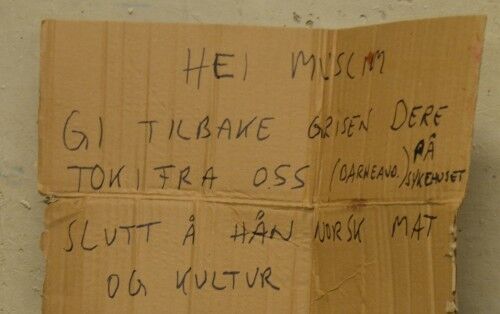 HEI MUSLIM
GI TILBAKE GRISEN DERE
TOK IFRA OSS (BARNEAVD.) PÅ SYKEHUSET
SLUTT Å HÅN NORSK MAT
OG KULTUR